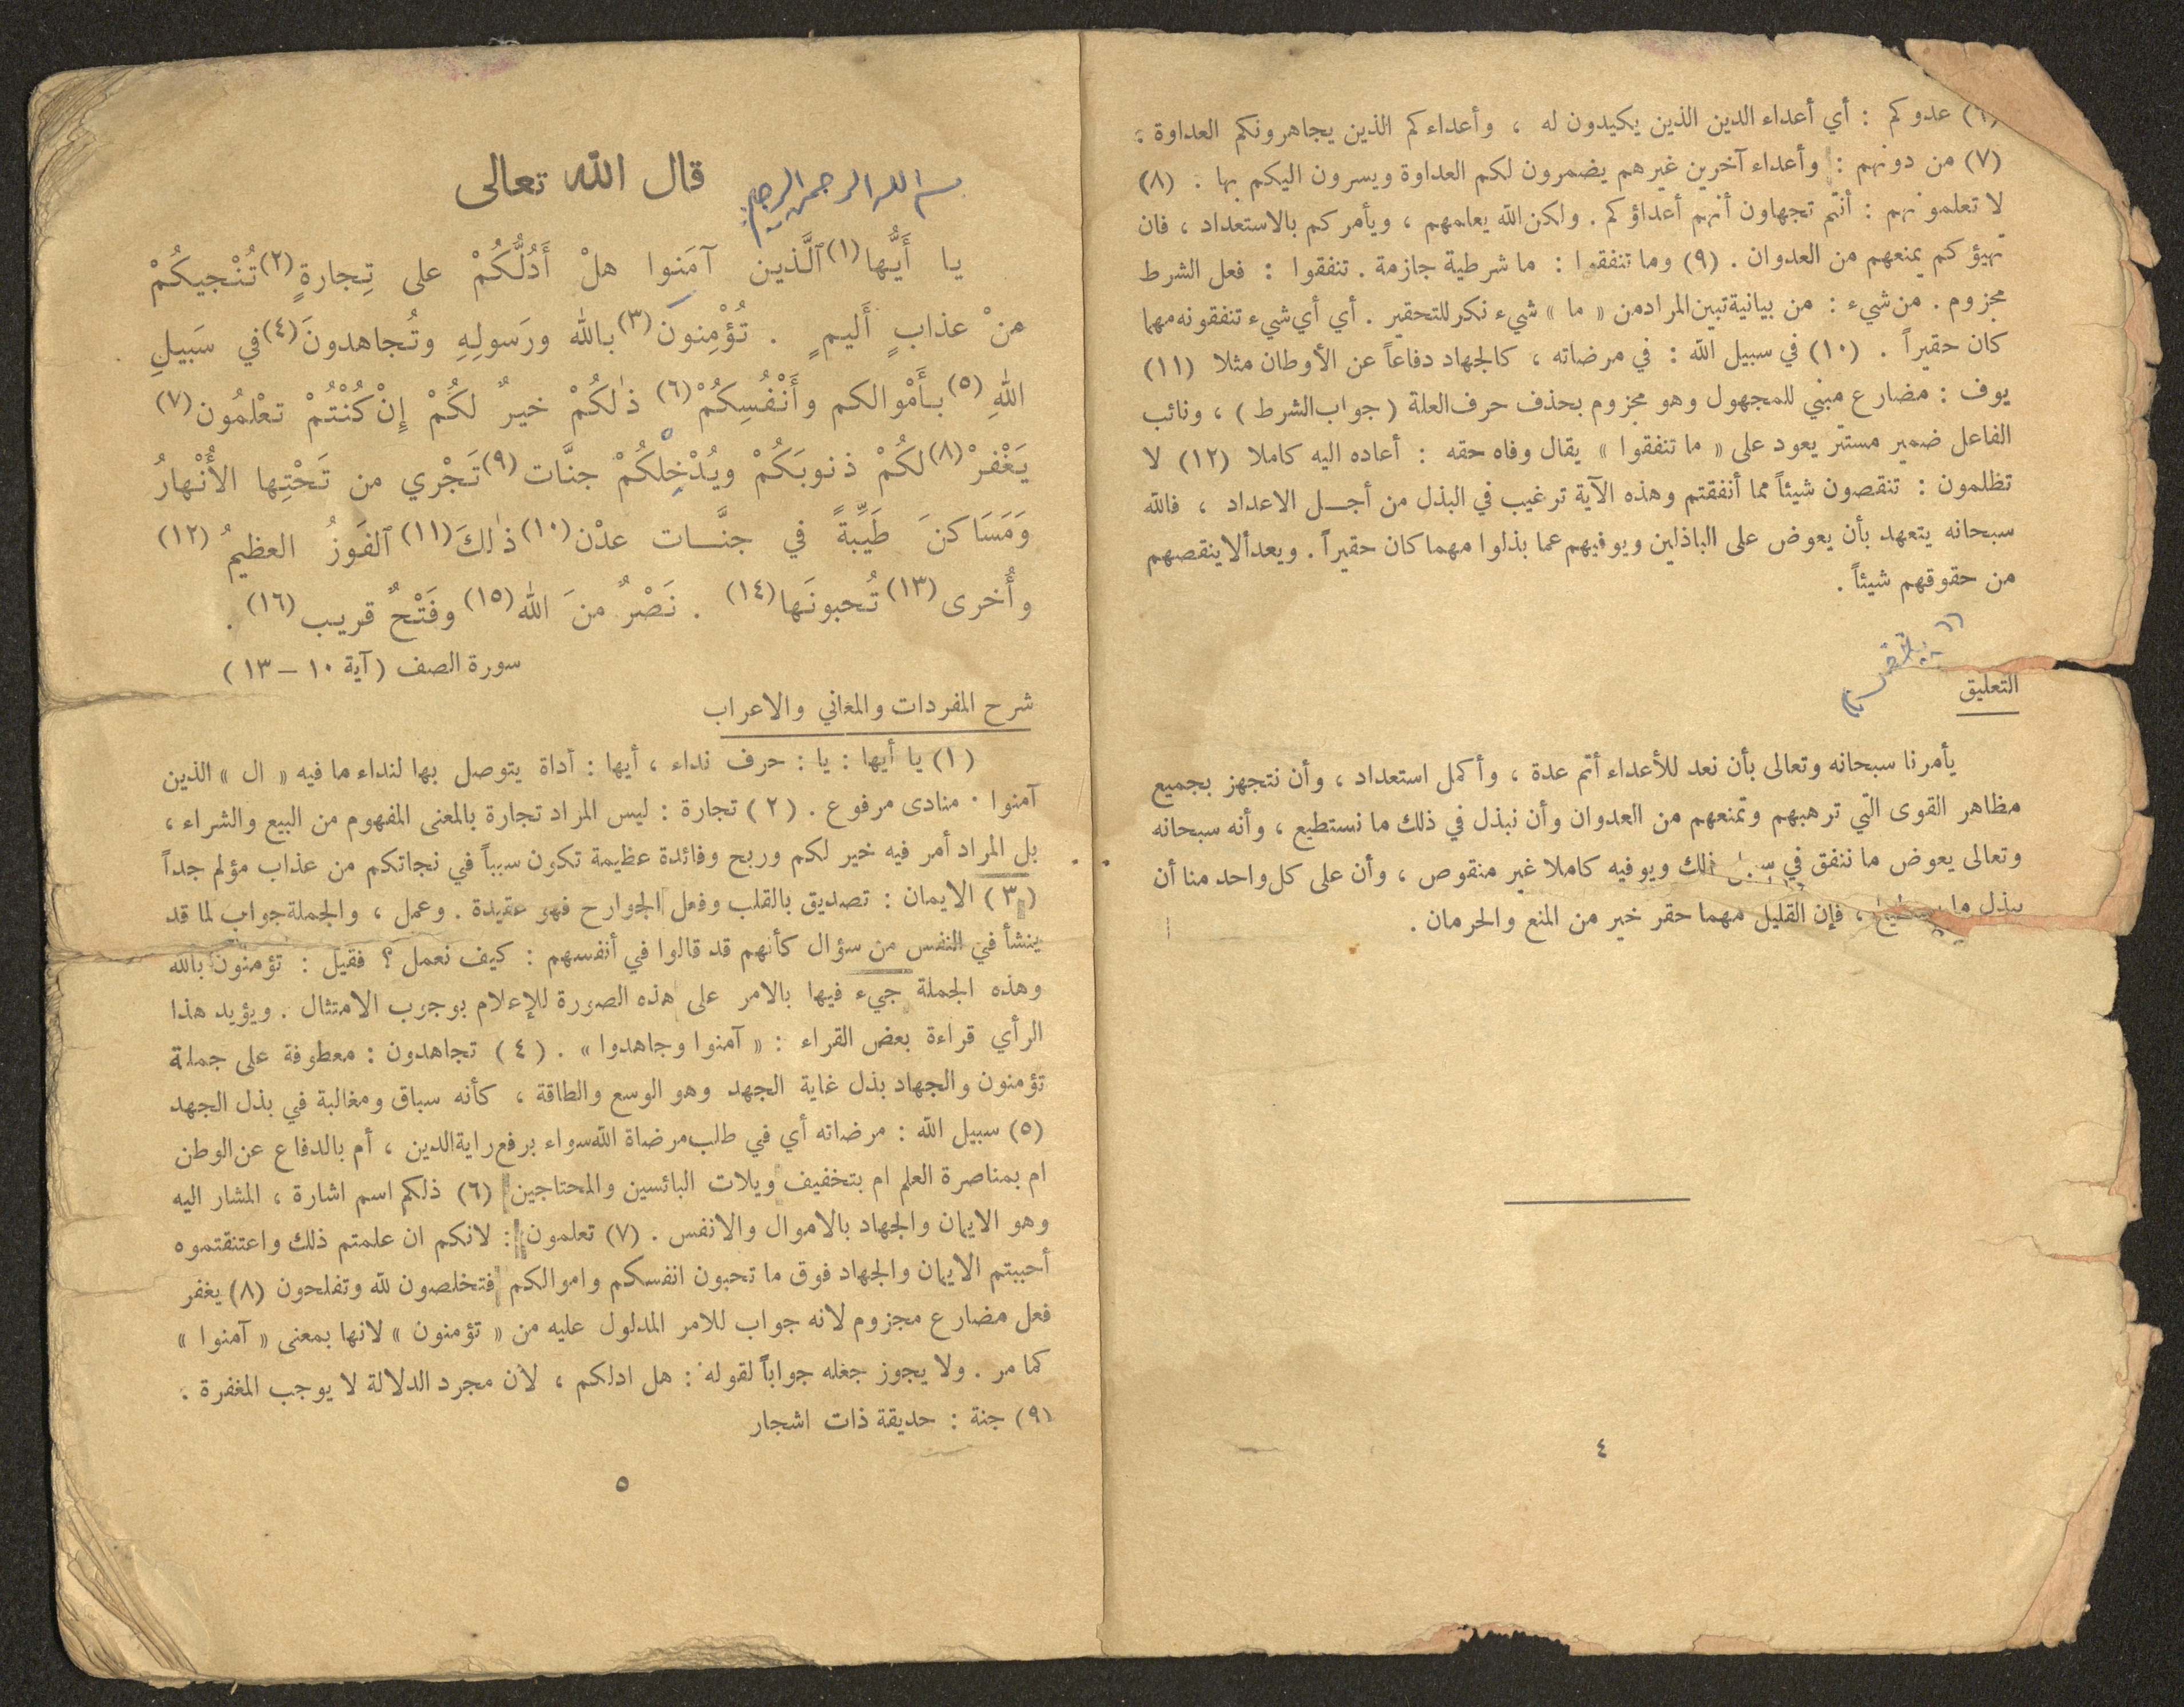 (٦) عدوكم : أي أعداء الدين الذين يكيدون له ، وأعداءكم الذين يجاهرونكم العداوة .
(٧) من دونهم : وأعداء آخرين غيرهم يضمرون لكم العداوة ويسرون اليكم بها . (٨)
لا تعلمونهم : أنتم تجهلون أنهم أعداؤكم . ولكن الله يعلمهم ، ويأمركم بالاستعداد ، فان
تهيؤكم يمنعهم من العدوان . (٩) وما تنفقوا : ما شرطية جازمة . تنفقوا : فعل الشرط
مجزوم . من شيء : من بيانية تبين المراد من « ما » شيء نكر للتحقير . أي أي شيء تنفقونه مهما
كان حقيراً . (١٠) في سبيل الله : في مرضاته ، كالجهاد دفاعاً عن الأوطان مثلا (١١)
يوف : مضارع مبني للمجهول وهو مجزوم بحذف حرف العلة ( جواب الشرط ) ، ونائب
الفاعل ضمير مستتر يعود على « ما تنفقوا » يقال وفاه حقه : أعاده اليه كاملا (١٢) لا
تظلمون : تنقصون شيئاً مما أنفقتم وهذه الآية ترغيب في البذل من أجــل الاعداد ، فالله
سبحانه يتعهد بأن يعوض على الباذلين ويوفيهم عما بذلوا مهما كان حقيراً . ويعد ألا ينقصهم
من حقوقهم شيئاً .
التعليق
يأمرنا سبحانه وتعالى بأن نعد للأعداء أتم عدة ، وأكمل استعداد ، وأن نتجهز بجميع
مظاهر القوى التي ترهبهم وتمنعهم من العدوان وأن نبذل في ذلك ما نستطيع ، وأنه سبحانه
وتعالى يعوض ما ننفق في سبيل ذلك ويوفيه كاملا غير منقوص ، وأن على كل واحد منا أن
يبذل ما يستطيع ، فإن القليل مهما حقر خير من المنع والحرمان .
٤
بسم الله الرحمن الرحيم
قال الله تعالى
يا أَيُّها(١)ٱلَّذين آمَنوا هلْ أَدُلُّكُمْ على تِجارةٍ(٢)تُنْجيكُمْ
منْ عذابٍ أَليمٍ . تُؤْمِنونَ(٣)بالله ورَسولِهِ وتُجاهدونَ(٤)في سَبيلِ
اللهِ(٥)بأَمْوالكم وأَنْفُسِكُمْ(٦) ذٰلكُمْ خيرٌ لكُمْ إِنْ كُنْتُمْ تعْلمُون(٧)
يَغْفرْ(٨)لكُمْ ذنوبَكُمْ ويُدْخِلكُمْ جنَّات(٩)تَجْري من تَحْتِها الأَنْهارُ
وَمَسَاكنَ طَيِّبةً في جنَّـــات عدْن(١٠)ذٰلكَ(١١)ٱلفَوزُ العظيمُ(١٢)
وأُخرى(١٣)تُحبونَها(١٤) . نَصْرٌ منَ الله(١٥)وفَتْحٌ قريب(١٦) .
سورة الصف ( آية ١٠ – ١٣ )
شرح المفردات والمعاني والاعراب
(١) يا أيها : يا : حرف نداء ، أيها : أداة يتوصل بها لنداء ما فيه « ال » الذين
آمنوا . منادى مرفوع . (٢) تجارة : ليس المراد تجارة بالمعنى المفهوم من البيع والشراء ،
بل المراد أمر فيه خير لكم وربح وفائدة عظيمة تكون سبباً في نجاتكم من عذاب مؤلم جداً
(٣) الايمان : تصديق بالقلب وفعل الجوارح فهو عقيدة . وعمل ، والجملة جواب لما قد
ينشأ في النفس من سؤال كأنهم قد قالوا في أنفسهم : كيف نعمل ؟ فقيل : تؤمنون بالله
وهذه الجملة جيء فيها بالامر على هذه الصورة للإعلام بوجوب الامتثال . ويؤيد هذا
الرأي قراءة بعض القراء : « آمنوا وجاهدوا » . (٤) تجاهدون : معطوفة على جملة
تؤمنون والجهاد بذل غاية الجهد وهو الوسع والطاقة ، كأنه سباق ومغالبة في بذل الجهد
(٥) سبيل الله : مرضاته أي في طلب مرضاة الله سواء برفع راية الدين ، أم بالدفاع عن الوطن
ام بمناصرة العلم ام بتخفيف ويلات البائسين والمحتاجين (٦) ذلكم اسم اشارة ، المشار اليه
وهو الايمان والجهاد بالاموال والانفس . (٧) تعلمون : لانكم ان علمتم ذلك واعتنقتموه
أحببتم الايمان والجهاد فوق ما تحبون انفسكم واموالكم فتخلصون لله وتفلحون (٨) يغفر
فعل مضارع مجزوم لانه جواب للامر المدلول عليه من « تؤمنون » لانها بمعنى « آمنوا »
كما مر . ولا يجوز جعله جواباً لقوله : هل ادلكم ، لأن مجرد الدلالة لا يوجب المغفرة .
(٩) جنة : حديقة ذات اشجار
٥